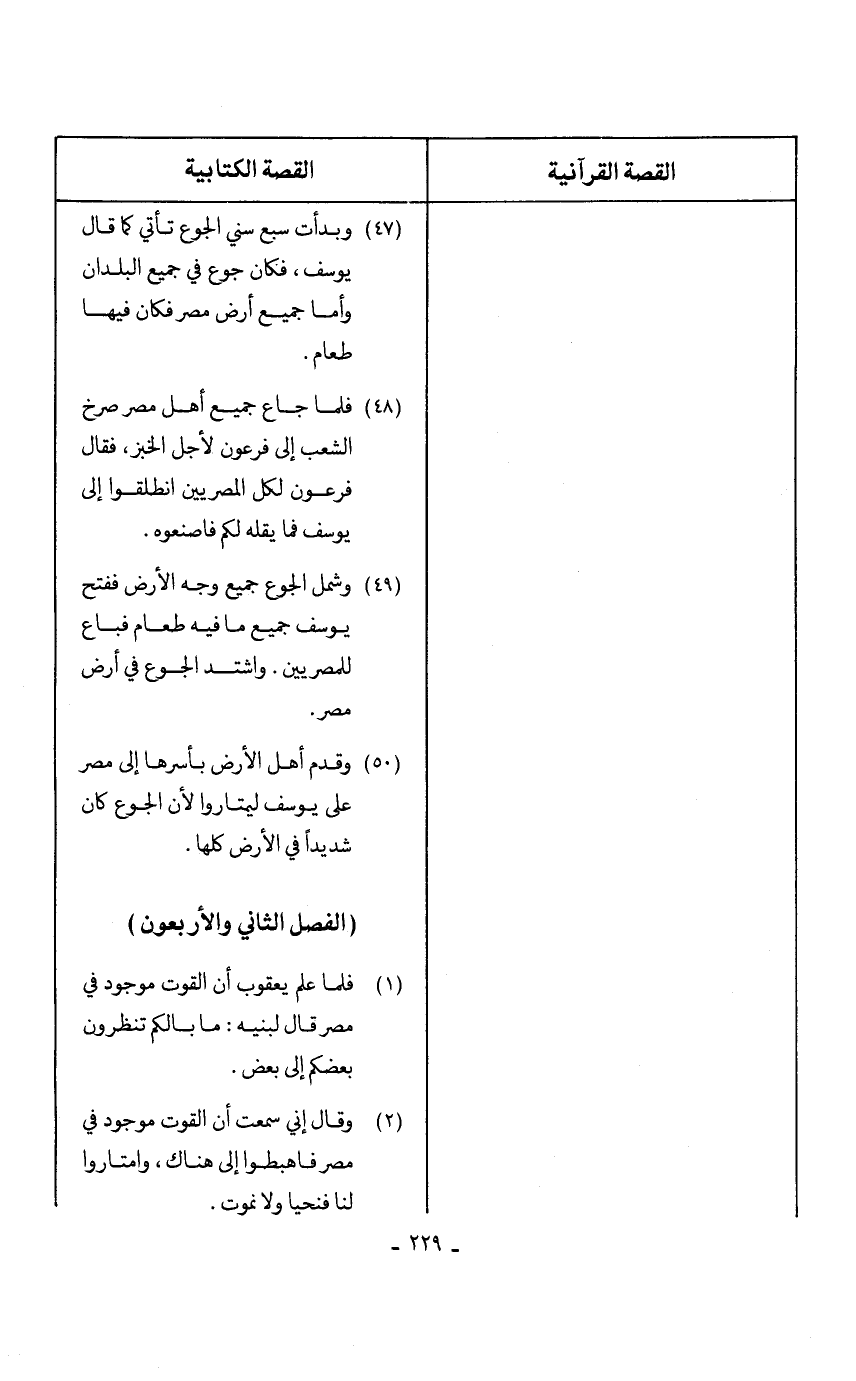 القصة القرآنية
القصة الكتابية
(٤٧) وبدأت سبع سني الجوع تأتي كما قال
يوسف ، فكان جوع في جميع البلدان
وأما جميع أرض مصر فكان فيها
طعام .
(٤٨) فلما جاع جميع أهل مصر صرخ
الشعب إلى فرعون لأجل الخبز ، فقال
فرعون لكل المصريين انطلقوا إلى
يوسف فما يقله لكم فاصنعوه .
(٤٩) وشمل الجوع جميع وجه الأرض ففتح
يوسف جميع ما فيه طعام فباع
للمصريين . واشتد الجوع في أرض
مصر .
(٥٠) وقدم أهل الأرض بأسرها إلى مصر
على يوسف ليمتاروا لأن الجوع كان
شديداً في الأرض كلها .
( الفصل الثاني والأربعون )
(١) فلما علم يعقوب أن القوت موجود في
مصر قال لبنيه : ما بالكم تنظرون
بعضكم إلى بعض .
(٢) وقال إني سمعت أن القوت موجود في
مصر فاهبطوا إلى هناك ، وامتاروا
لنا فنحيا ولا نموت .
- ٢٢٩ -